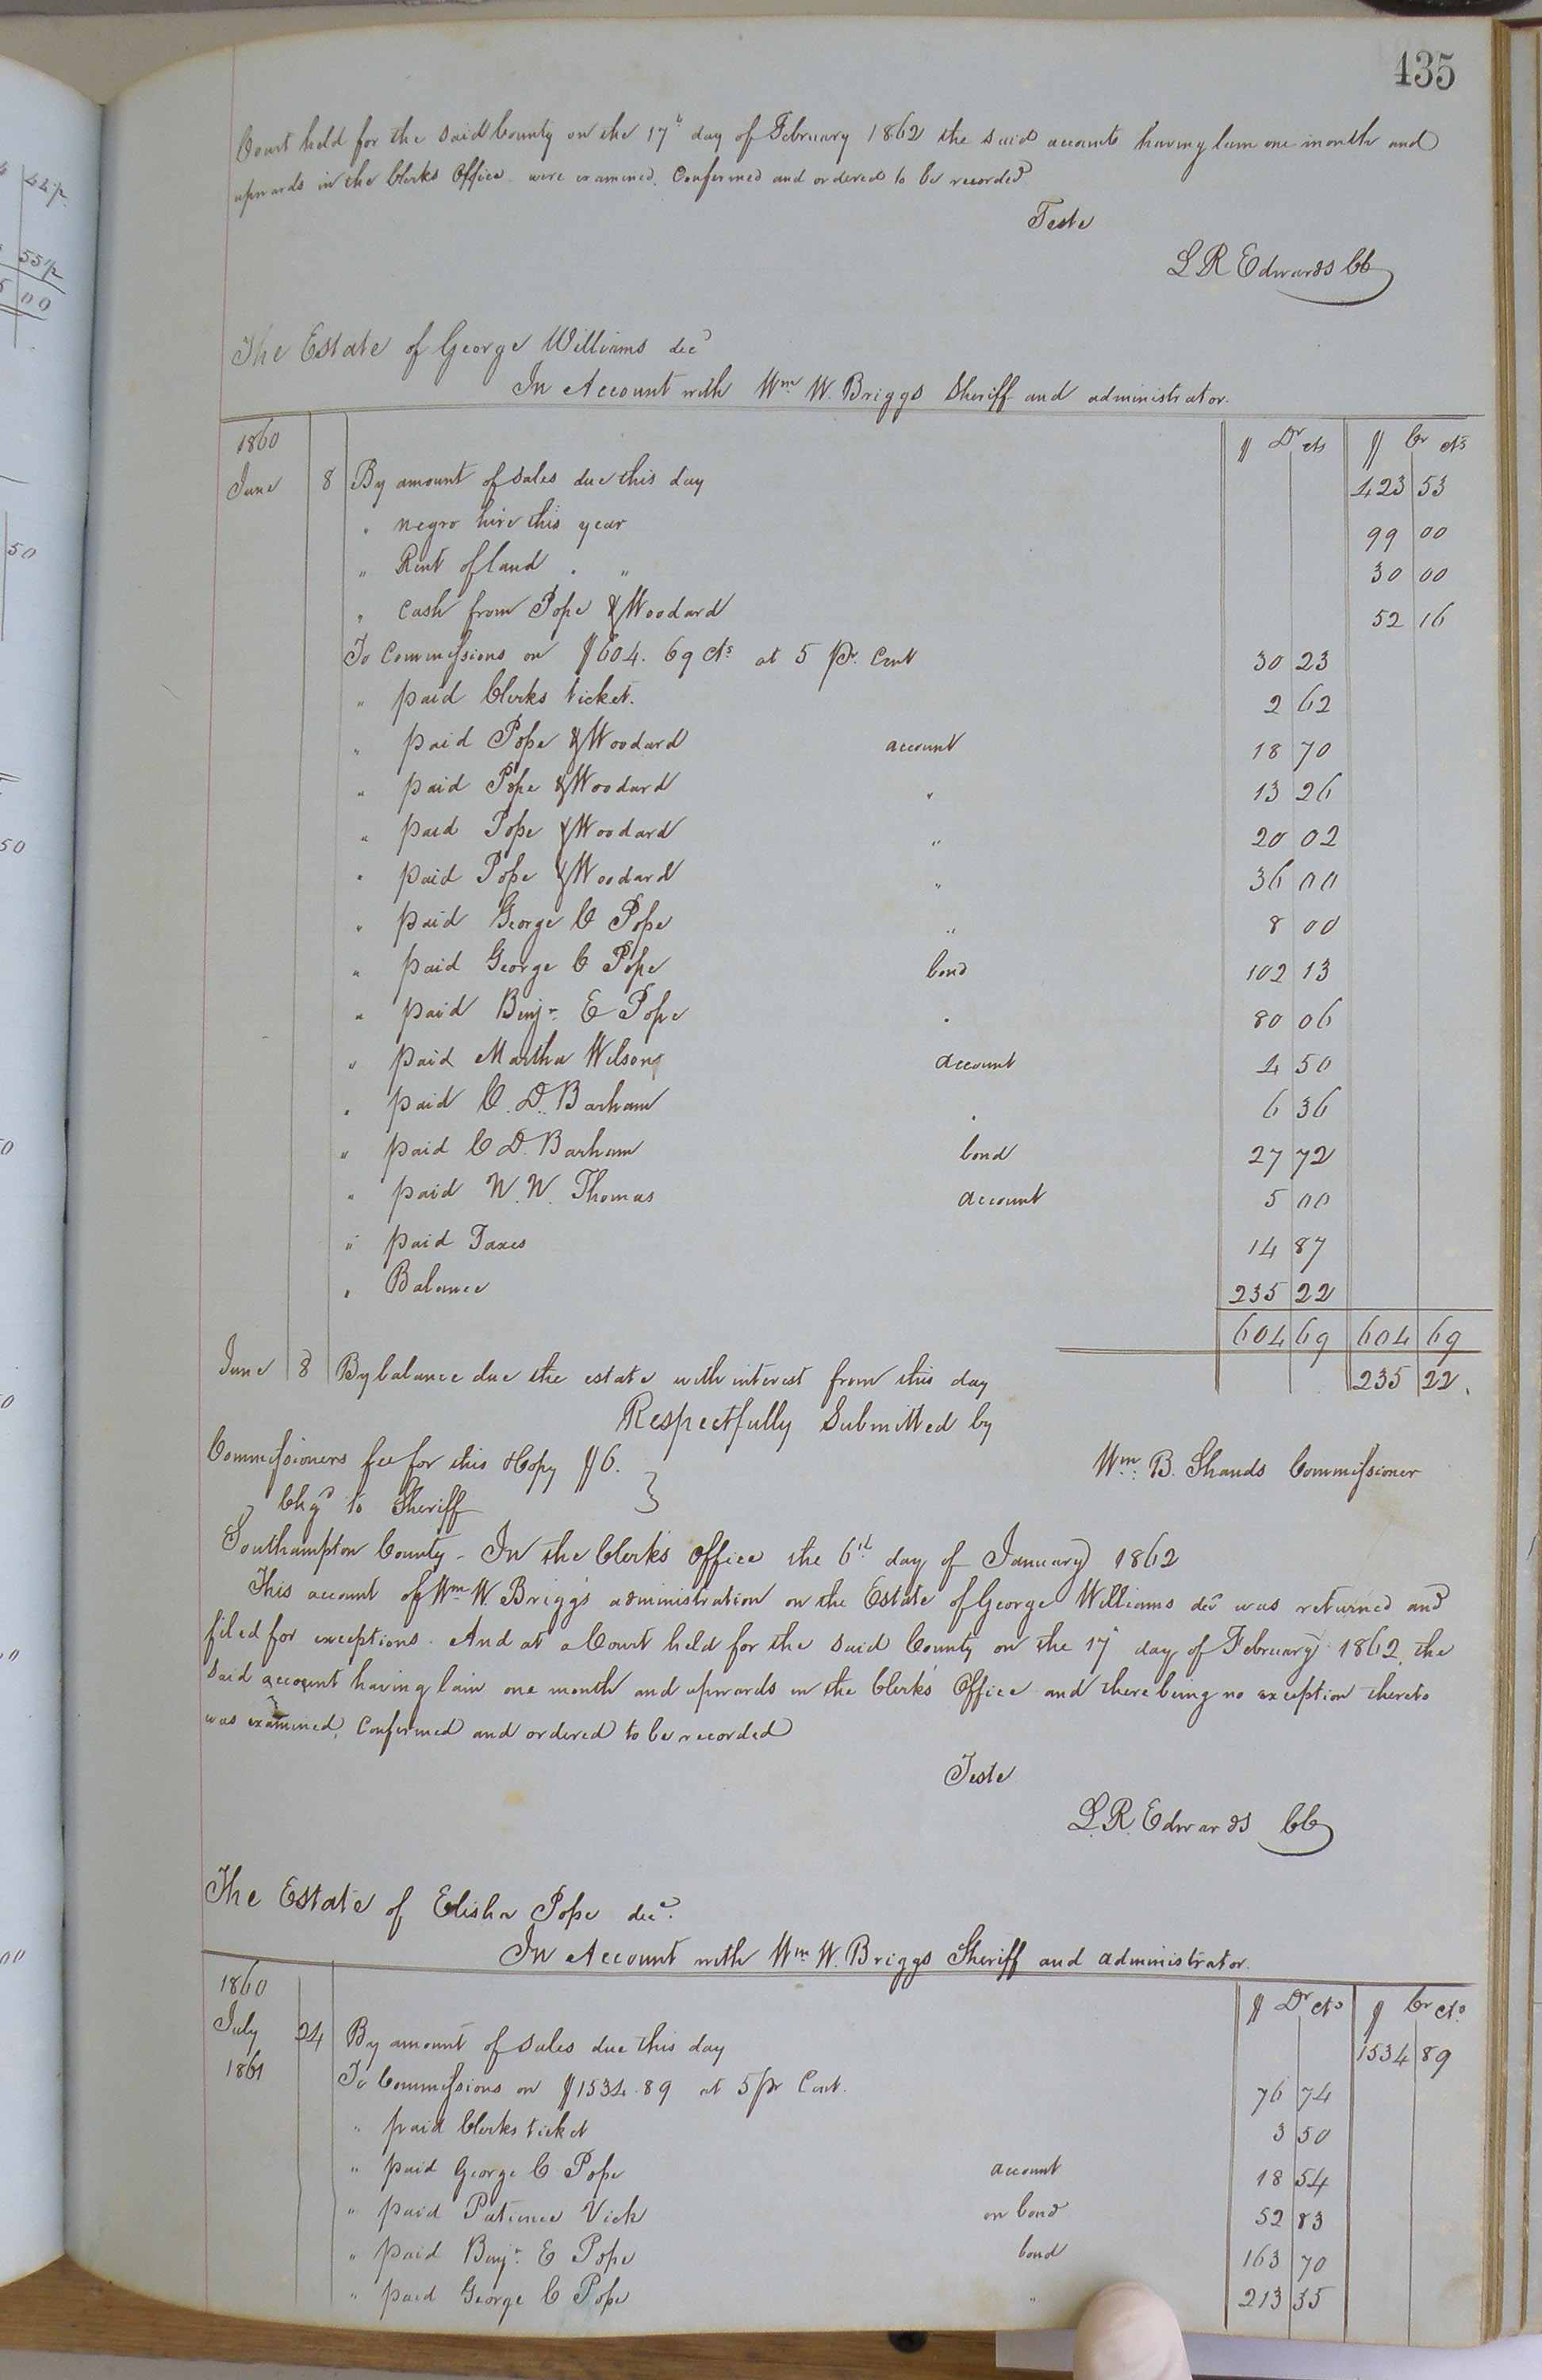 435
Court held for the said County on the 17th day of February 1862 the said accounts having lain one month and
upwards in the Clerks Office were examined, Confirmed and ordered to be recorded
Teste
L R Edwards CC
The Estate of George Williams decd
In Account with Wm W. Briggs Sheriff and administrator.
1860 $ Dr cts $ Cr cts
June 8 By amount of Sales due this day 423 53
" negro hire this year 99 00
" Rent of land " " 30 00
" Cash from Pope & Woodard 52 16
To Commissions on $604. 69 cts at 5 pr. Cent 30 23
" paid Clerks ticket. 2 62
" paid Pope & Woodard account 18 70
" paid Pope & Woodard " 13 26
" paid Pope & Woodard " 20 02
" paid Pope & Woodard " 36 00
" paid George C Pope " 8 00
" paid George C Pope bond 102 13
" paid Benjn E Pope " 80 06
" paid Martha Wilson account 4 50
" paid C. D. Barham " 6 36
" paid C D. Barham bond 27 72
" paid W. W. Thomas account 5 00
" paid Taxes 14 87
" Balance 235 22
604 69 604 69
June 8 By balance due the estate with interest from this day 235 22.
Respectfully Submitted by
Commissioners fee for this Copy $6. Wm. B. Shands Commissioner
" Chgd to Sheriff
Southampton County - In the Clerk's Office the 6th day of January 1862
This account of Wm W. Briggs administration on the Estate of George Williams decd was returned and
filed for exceptions. And at a Court held for the said County on the 17th day of February 1862, the
said account having lain one month and upwards in the Clerks Office and there being no exception thereto
was examined, Confirmed and ordered to be recorded
Teste
L. R. Edwards CC
The Estate of Elisha Pope decd.
In Account with Wm W. Briggs Sheriff and administrator.
1860 $ Dr cts $ Cr cts
July 24 By amount of Sales due this day 1534 89
1861 To Commissions on $1534.89 at 5 pr Cent. 76 74
" paid Clerks ticket 3 50
" paid George C Pope account 18 54
" paid Patience Vick on bond 52 83
" paid Benjn. E Pope bond 163 70
" paid George C Pope " 213 35